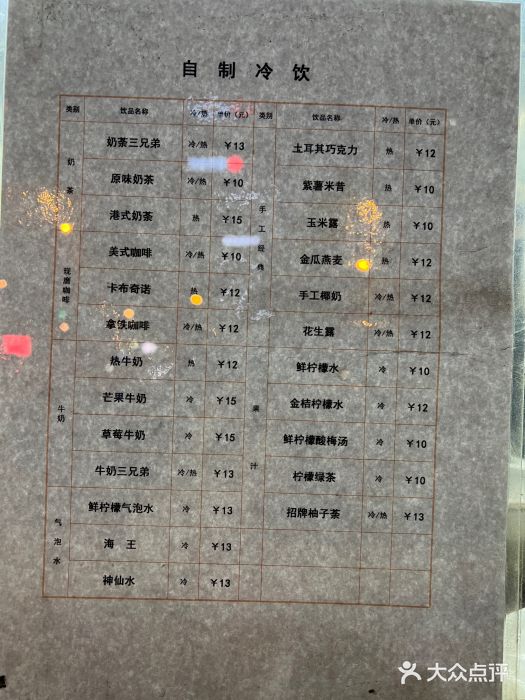 自制冷饮
类别 饮品名称 冷/热 单价（元） 类别 饮品名称 冷/热 单价（元）
奶茶
奶茶三兄弟 冷/热 ￥13
原味奶茶 冷/热 ￥10
港式奶茶 热 ￥15
现磨咖啡
美式咖啡 冷/热 ￥10
卡布奇诺 热 ￥12
拿铁咖啡 冷/热 ￥12
牛奶
热牛奶 热 ￥12
芒果牛奶 冷 ￥15
草莓牛奶 冷 ￥15
牛奶三兄弟 冷/热 ￥13
气泡水
鲜柠檬气泡水 冷 ￥13
海 王 冷 ￥13
神仙水 冷 ￥13
手工经典
土耳其巧克力 热 ￥12
紫薯米昔 热 ￥10
玉米露 热 ￥10
金瓜燕麦 热 ￥12
手工椰奶 冷/热 ￥12
花生露 冷/热 ￥12
果汁
鲜柠檬水 冷 ￥10
金桔柠檬水 冷 ￥12
鲜柠檬酸梅汤 冷 ￥10
柠檬绿茶 冷 ￥10
招牌柚子茶 冷/热 ￥13
大众点评